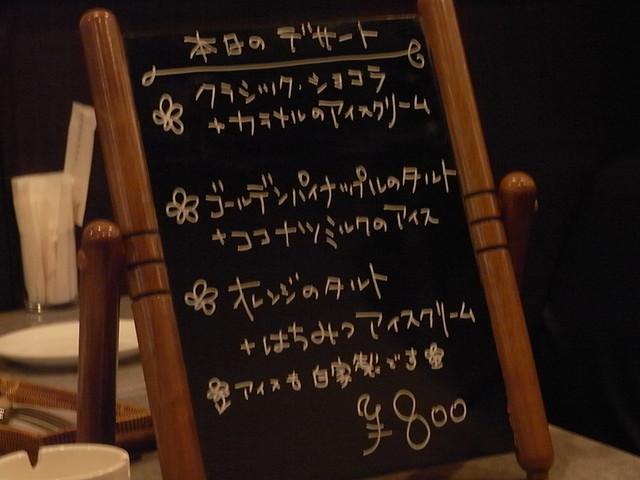 本日のデザート
クラシック・ショコラ
+カラメルのアイスクリーム
ゴールデンパイナップルのタルト
+ココナツミルクのアイス
オレンジのタルト
+はちみつアイスクリーム
アイスも自家製です
¥800